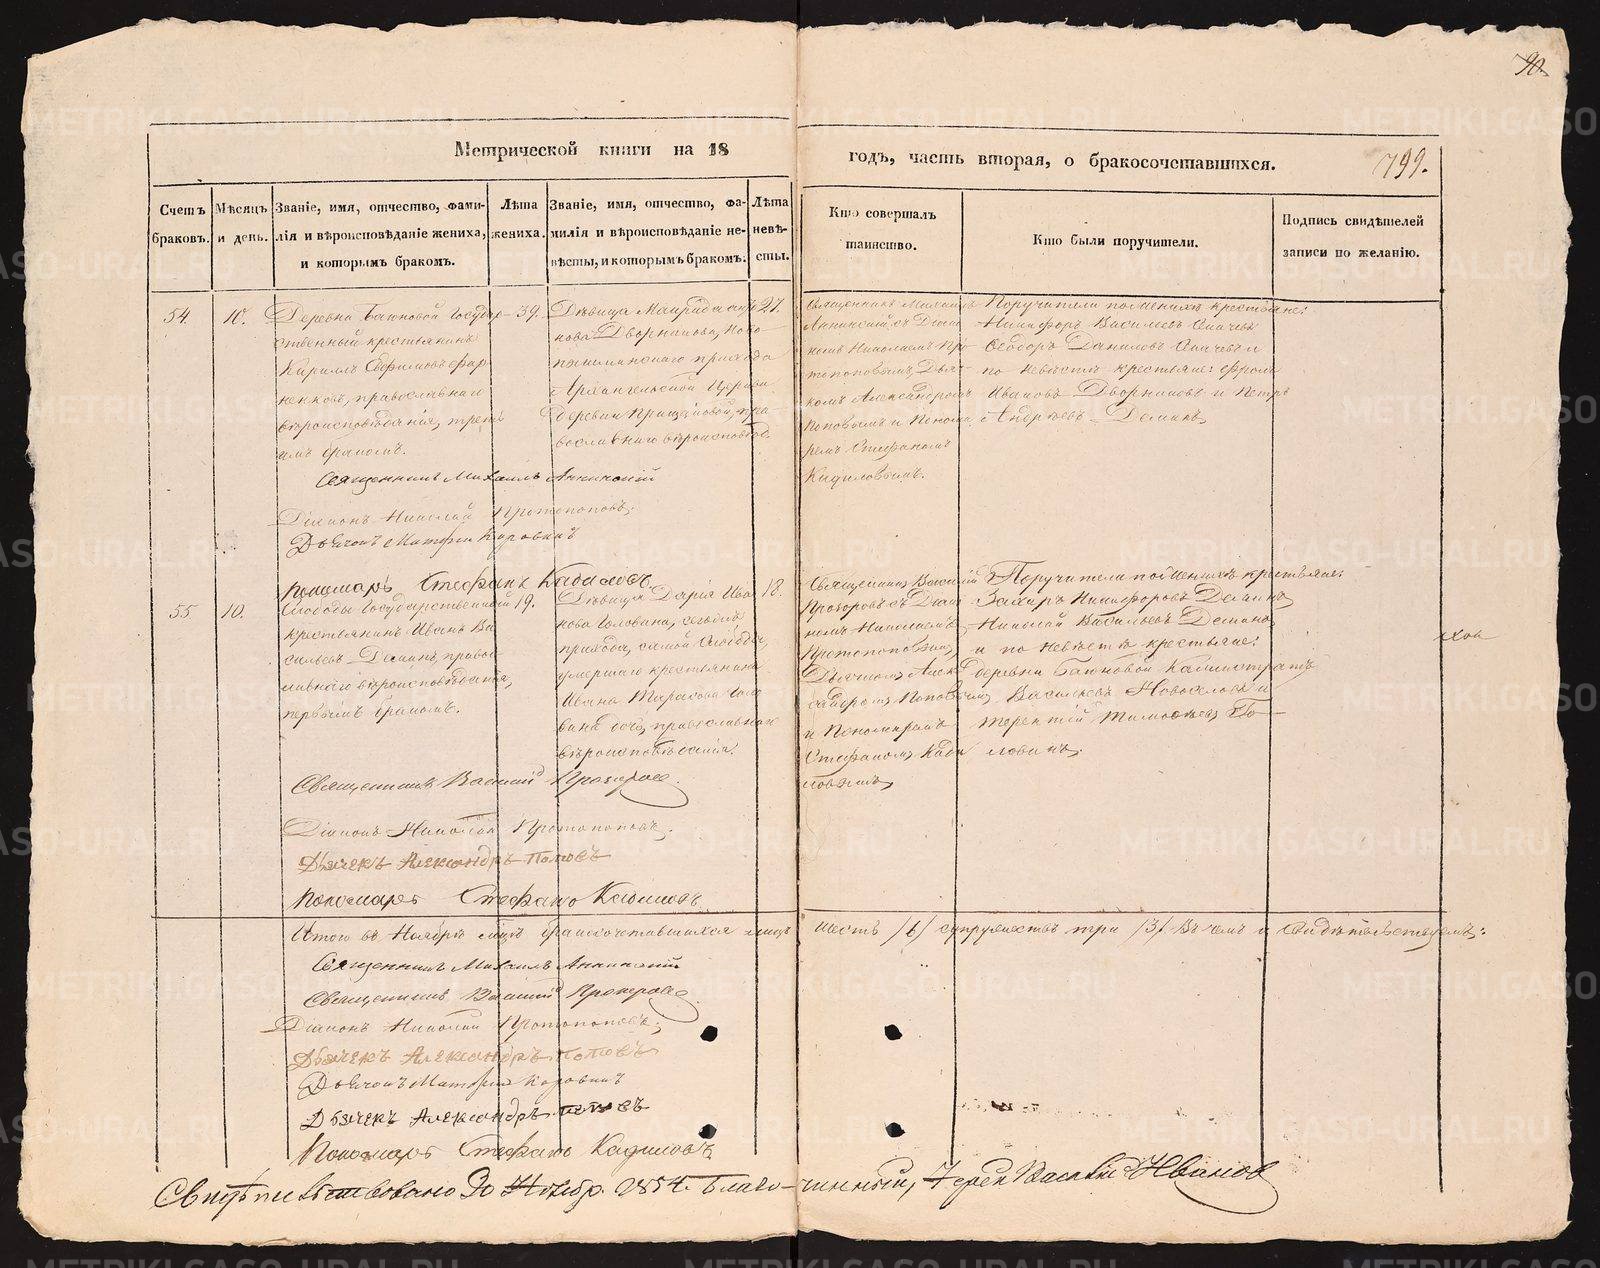 90.
Метрической книги на 18
годъ, часть вторая, о бракосочетавшихся.
799.
Счетъ браковъ.
Мѣсяцъ и день.
Званіе, имя, отчество, фами-
лія и вѣроисповѣданіе жениха,
и которымъ бракомъ.
Лѣта
жениха.
Званіе, имя, отчество, фа-
милія и вѣроисповѣданіе не-
вѣсты, и которымъ бракомъ.
Лѣта
невѣ-
сты.
Кто совершалъ
таинство.
Кто были поручители.
Подпись свидѣтелей
записи по желанію.
54.
10.
Деревни Баиновой Государ-
ственный крестьянинъ
Кириллъ
православнаго
вѣроисповѣданія, треть-
имъ бракомъ.
39.
Дѣвица
нова Дворникова, Ново-
прихода
Архангельской Церкви
деревни
вославнаго вѣроисповѣд.
27.
Священникъ Михаилъ
съ Діако-
номъ Николаемъ Про-
топоповымъ, Дья-
комъ Александромъ
Поповымъ и Понома-
ремъ Стефаномъ
Кадиловымъ.
Поручители по женихѣ крестьяне:
Никифоръ Васильевъ
Ѳеодоръ Даниловъ
по невѣстѣ крестьяне: Фролъ
Ивановъ Дворниковъ и Петръ
Андреевъ Деминъ
Священникъ Михаилъ
Діаконъ Николай Протопоповъ.
Дьячокъ Матфей Коровинъ
Пономарь Стефанъ Кадиловъ.
55
10.
Слободы Государственный
крестьянинъ Иванъ Ва-
сильевъ Деминъ, право-
славнаго вѣроисповѣданія,
первымъ бракомъ.
19.
Дѣвица Дарія Ива-
нова Головина, сего же
прихода, самой Слободы,
умершаго крестьянина
Ивана Тарасова Голо-
вина дочь, православнаго
вѣроисповѣданія.
18.
Священникъ Василій
Прозоровъ съ Діако-
номъ Николаемъ
Протопоповымъ,
Дьячкомъ Алек-
сандромъ Поповымъ
и Пономаремъ
Стефаномъ Кади-
ловымъ
Поручители по женихѣ крестьяне:
Захаръ Никифоровъ Деминъ,
Николай Васильевъ Деминъ
и по невѣстѣ крестьяне:
деревни Баиновой Калистратъ
Васильевъ Новоселовъ и
Терентій Тимофеевъ Го-
ловинъ.
Священникъ Василій Прозоровъ.
Діаконъ Николай Протопоповъ.
Дьячекъ Александръ Поповъ
Пономарь Стефанъ Кадиловъ
Итого въ Ноябрѣ мцѣ бракосочетавшихся лицъ шесть /6/ супружествъ три /3/ Въ чемъ и свидѣтельствуемъ:
Священникъ Михаилъ
Священникъ Василій Прозоровъ
Діаконъ Николай Протопоповъ,
Дьячекъ Александръ Поповъ
Дьячокъ Матфей Коровинъ
Дьячекъ Александръ Поповъ
Пономарь Стефанъ Кадиловъ
Свидѣтельствовано 30 Ноябр. 1854. Благочинный, Іерей Василій Ивановъ
METRIKI.GASO-URAL.RU